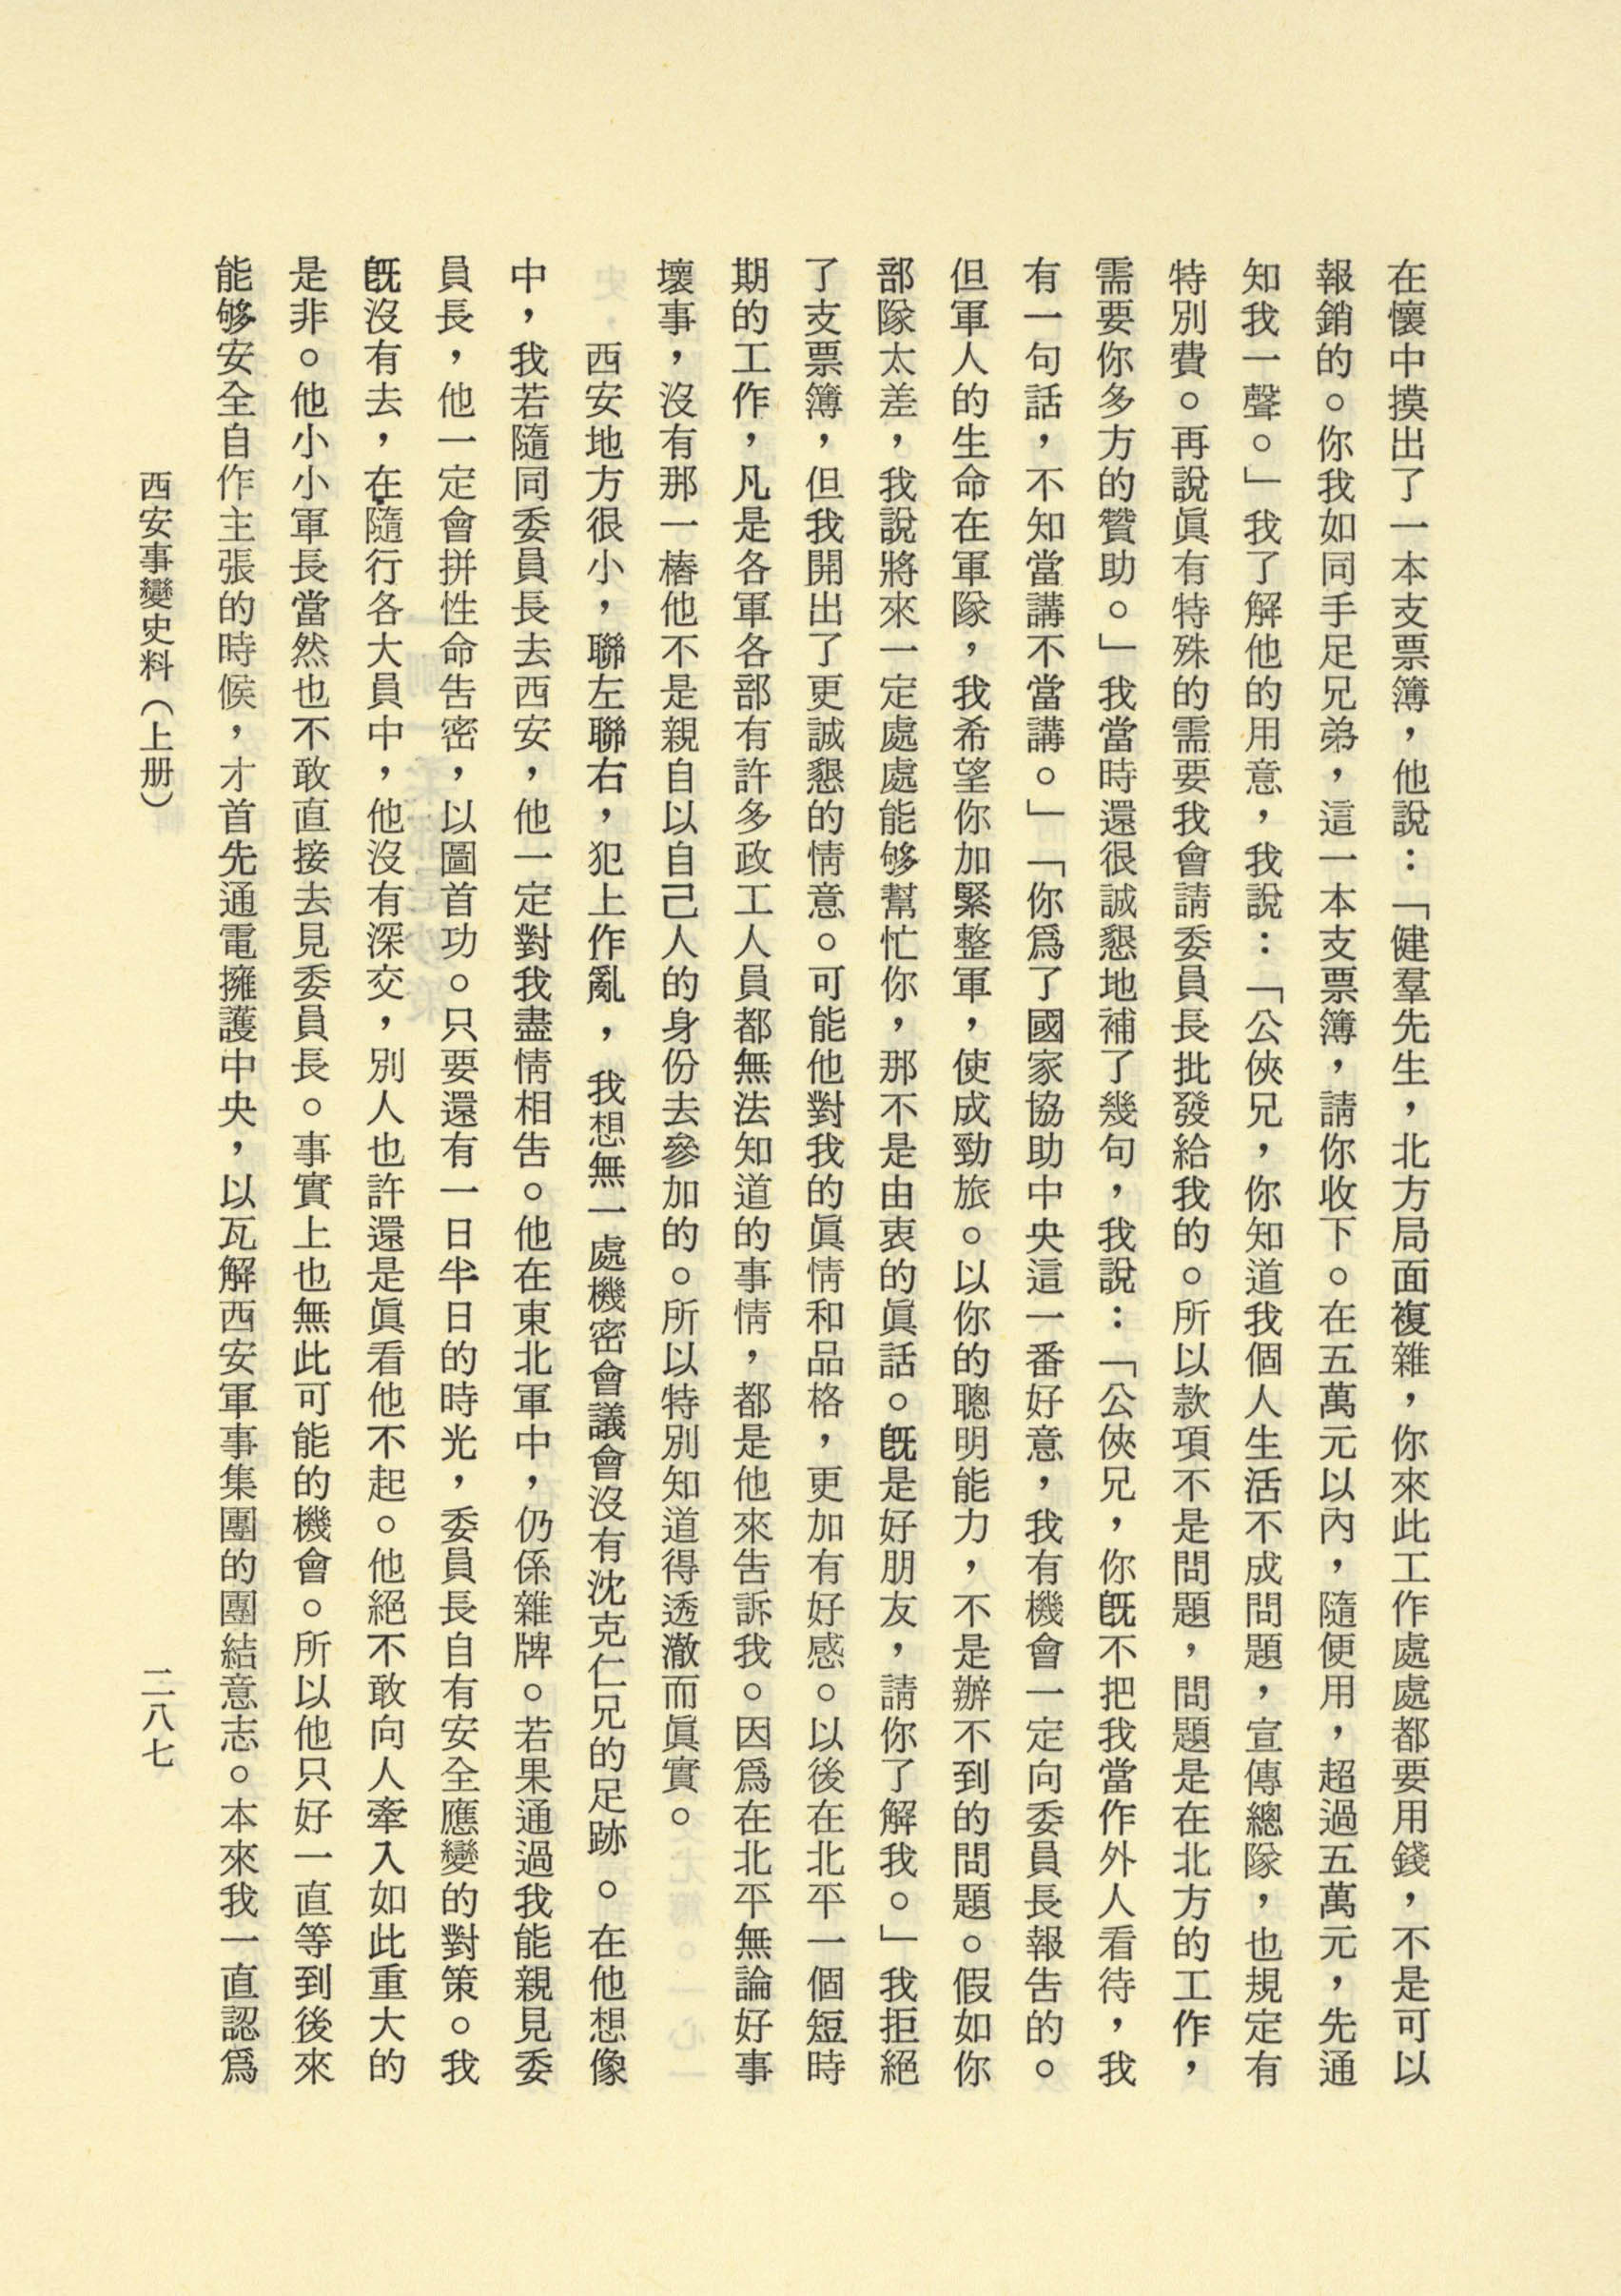 在懷中摸出了一本支票簿，他說：「健羣先生，北方局面複雜，你來此工作處處都要用錢，不是可以
報銷的。你我如同手足兄弟，這一本支票簿，請你收下。在五萬元以內，隨便用，超過五萬元，先通
知我一聲。」我了解他的用意，我說：「公俠兄，你知道我個人生活不成問題，宣傳總隊，也規定有
特別費。再說眞有特殊的需要我會請委員長批發給我的。所以款項不是問題，問題是在北方的工作，
需要你多方的贊助。」我當時還很誠懇地補了幾句，我說：「公俠兄，你旣不把我當作外人看待，我
有一句話，不知當講不當講。」「你爲了國家協助中央這一番好意，我有機會一定向委員長報告的。
但軍人的生命在軍隊，我希望你加緊整軍，使成勁旅。以你的聰明能力，不是辦不到的問題。假如你
部隊太差，我說將來一定處處能够幫忙你，那不是由衷的眞話。旣是好朋友，請你了解我。」我拒絕
了支票簿，但我開出了更誠懇的情意。可能他對我的眞情和品格，更加有好感。以後在北平一個短時
期的工作，凡是各軍各部有許多政工人員都無法知道的事情，都是他來告訴我。因爲在北平無論好事
壞事，沒有那一樁他不是親自以自己人的身份去參加的。所以特別知道得透澈而眞實。
西安地方很小，聯左聯右，犯上作亂，我想無一處機密會議會沒有沈克仁兄的足跡。在他想像
中，我若隨同委員長去西安，他一定對我盡情相告。他在東北軍中，仍係雜牌。若果通過我能親見委
員長，他一定會拼性命告密，以圖首功。只要還有一日半日的時光，委員長自有安全應變的對策。我
旣沒有去，在隨行各大員中，他沒有深交，別人也許還是眞看他不起。他絕不敢向人牽入如此重大的
是非。他小小軍長當然也不敢直接去見委員長。事實上也無此可能的機會。所以他只好一直等到後來
能够安全自作主張的時候，才首先通電擁護中央，以瓦解西安軍事集團的團結意志。本來我一直認爲
西安事變史料（上册）
二八七